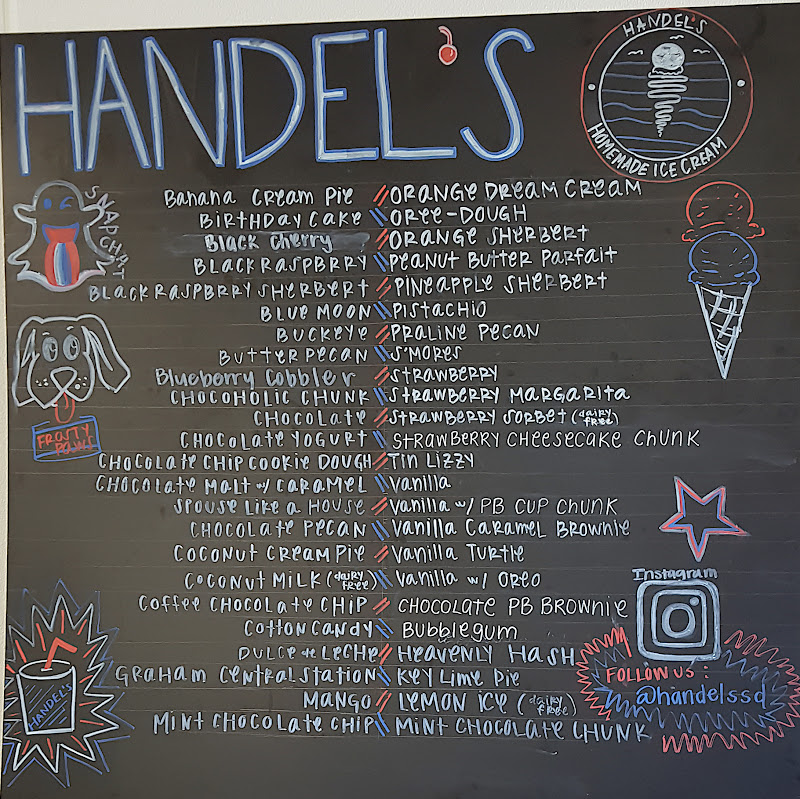 HANDEL'S
HANDEL'S
HOMEMADE ICE CREAM
SNAPCHAT
BANANA CREAM PIE // ORANGE DREAM CREAM
BIRTHDAY CAKE \\ OREE-DOUGH
Black Cherry // ORANGE SHERBERT
BLACK RASPBRRY \\ PEANUT BUTTER PARFAIT
BLACK RASPBRRY SHERBERT // PINEAPPLE SHERBERT
BLUE MOON \\ PISTACHIO
BUCKEYE // PRALINE PECAN
BUTTER PECAN \\ S'MORES
Blueberry Cobbler // STRAWBERRY
CHOCOHOLIC CHUNK \\ STRAWBERRY MARGARITA
CHOCOLATE // STRAWBERRY SORBET (dairy free)
CHOCOLATE YOGURT \\ STRAWBERRY CHEESECAKE CHUNK
CHOCOLATE CHIP COOKIE DOUGH // TIN LIZZY
CHOCOLATE MALT w/ CARAMEL \\ VANILLA
SPOUSE LIKE A HOUSE // VANILLA w/ PB CUP CHUNK
CHOCOLATE PECAN \\ VANILLA CARAMEL BROWNIE
COCONUT CREAM PIE // VANILLA TURTLE
COCONUT MILK (dairy free) \\ VANILLA w/ OREO
COFFEE CHOCOLATE CHIP // CHOCOLATE PB BROWNIE
COTTON CANDY \\ BUBBLEGUM
DULCE de LECHE // HEAVENLY HASH
GRAHAM CENTRAL STATION \\ KEY LIME PIE
MANGO // LEMON ICE (dairy free)
MINT CHOCOLATE CHIP \\ MINT CHOCOLATE CHUNK
FROSTY PAWS
HANDEL'S
Instagram
FOLLOW US :
@handelssd